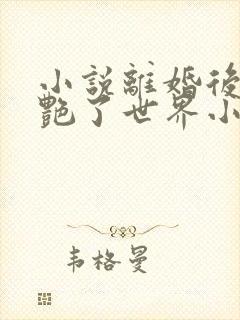 小說離婚後
艷了世界小
韦格曼